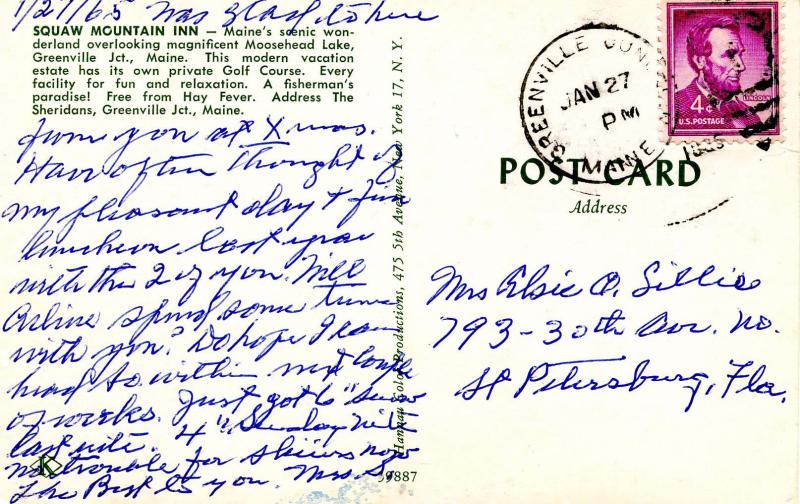 1/27/65 Was glad to hear
SQUAW MOUNTAIN INN — Maine's scenic won-
derland overlooking magnificent Moosehead Lake,
Greenville Jct., Maine. This modern vacation
estate has its own private Golf Course. Every
facility for fun and relaxation. A fisherman's
paradise! Free from Hay Fever. Address The
Sheridans, Greenville Jct., Maine.
from you at Xmas.
Have often thought of
my pleasant day & fine
luncheon last year
with the 2 of you. Will
Arline spend some time
with you? Do hope I can
head to within next couple
of weeks. Just got 6" snow
last nite. 4" Sunday nite
no trouble for skiiers now
The Best to you. Mrs S.
K
39887
Hannau Color Productions, 475 5th Avenue, New York 17, N. Y.
GREENVILLE JUNC
JAN 27
PM
MAINE
1965
4¢
LINCOLN
U.S. POSTAGE
POST CARD
Address
Mrs Elsie O. Gillis
793-30th Ave. No.
St Petersburg, Fla.